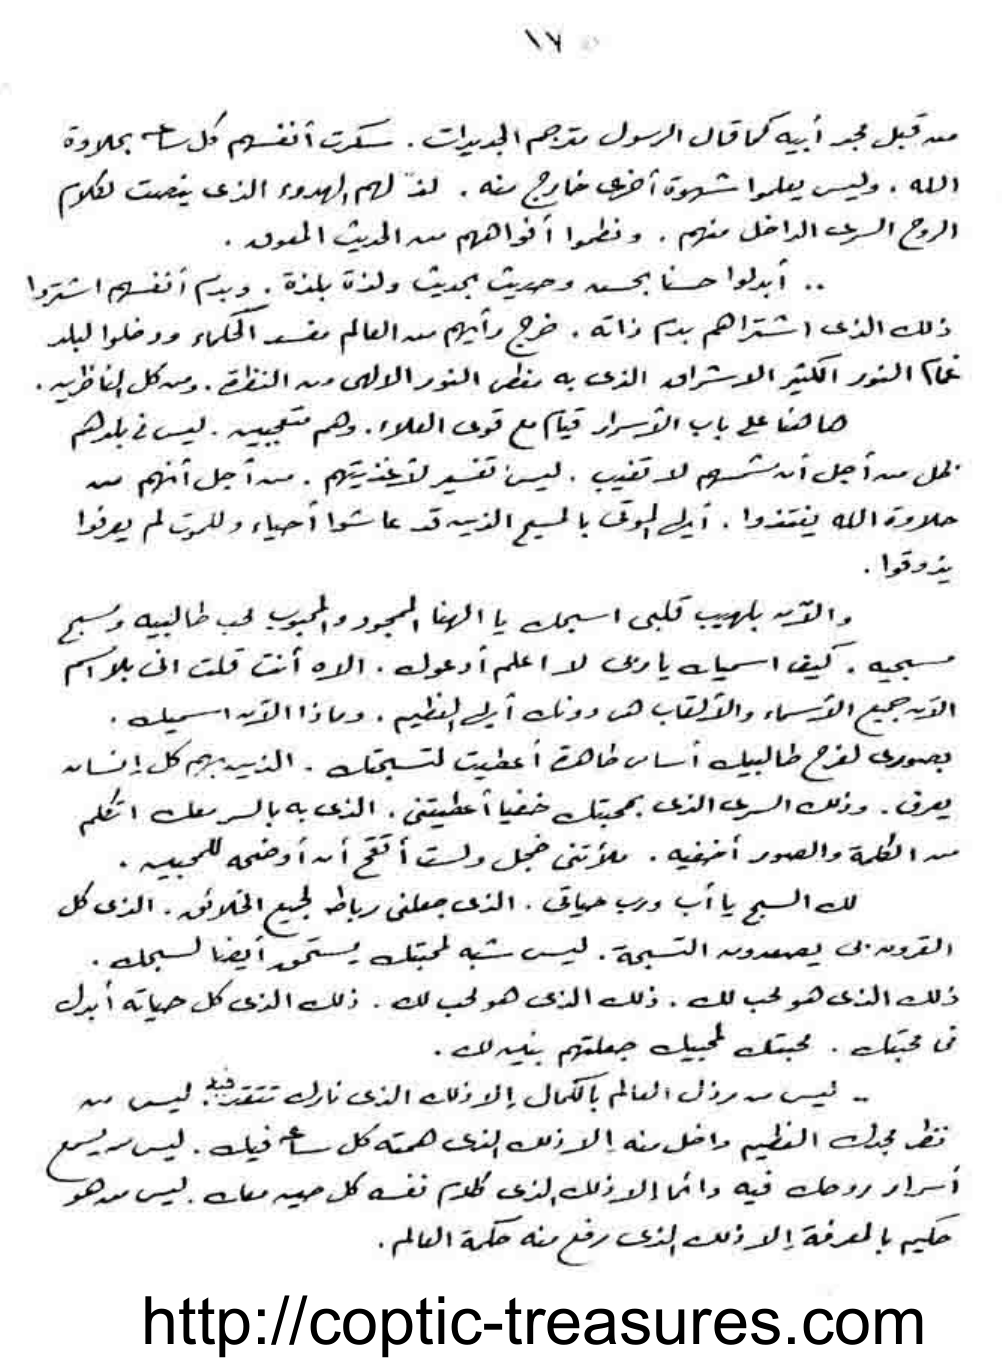 ١٧
من قبل مجد أبيه كما قال الرسول مترجم الجديدات . سكرت أنفسهم كل ساعة بحلاوة
الله . وليس يعلموا شهوة أخرى خارج منه . لذّ لهم الهدوء الذى ينصت لكلام
الروح السرى الداخل منهم . ونطموا أفواههم من الحديث المعوق .
.. أبدلوا حسنا بحسن وحديث بحديث ولذة بلذة . وبدم أنفسهم اشتروا
ذلك الذى اشتراهم بدم ذاته . خرج رأيهم من العالم مفسد الحكماء ودخلوا لبلد
غمام النور الكثير الاشراق الذى به مغطى النور الالهى من النظرة . ومن كل الناظرين .
هاهنا على باب الأسرار قيام مع قوى العلاء . وهم متعجبين . ليس فى بلدهم
ظل من أجل أن شمسهم لا تغيب . ليس تفسير لأغذيتهم . من أجل أنهم من
حلاوة الله يغتذوا . أيها الموتى بالمسيح الذين قد عاشوا أحياء وللموت لم يعرفوا
يذوقوا .
والآن بلهيب قلبى اسبحك يا الهنا الممجد والمحبوب لحب طالبيه ومسبح
مسبحيه . كيف اسميك يا ربى لا اعلم أدعوك . الاه أنت قلت انى بلا اسم
الآن جميع الأسماء والألقاب هى دونك أيها العظيم . وماذا الآن اسميك .
بصورى لفرح طالبيك أساس طاهرة أعطيت لتسبحتك . الذين بهم كل إنسان
يعرف . وذلك السرى الذى بمحبتك خفيا أعطيتنى . الذى به بالسر معك اتكلم
من الكلمة والصور أخفيه . ملأتنى خجل ولست أقح أن أوضحه للمحبين .
لك السبح يا أب ورب حياتى . الذى جعلنى رباط لجميع الخلائق . الذى كل
القرون بى يصعدون التسبحة . ليس شبه لمحبتك يستحق أيضا لسبحك .
ذلك الذى هو لحب لك . ذلك الذى هو لحب لك . ذلك الذى كل حياته أبدل
فى محبتك . محبتك لمحبيك جعلتهم بنين لك .
.. ليس من رذل العالم بالكمال إلا ذلك الذى نارك تتقد فيه . ليس من
نظر مجدك العظيم داخل منه إلا ذلك الذى همته كل ساعة فيك . ليس من يسمع
أسرار روحك فيه دائما إلا ذلك الذى كلام نفسه كل حين معك . ليس من هو
حكيم بالمعرفة إلا ذلك الذى رفع منه حكمة العالم .
http://coptic-treasures.com